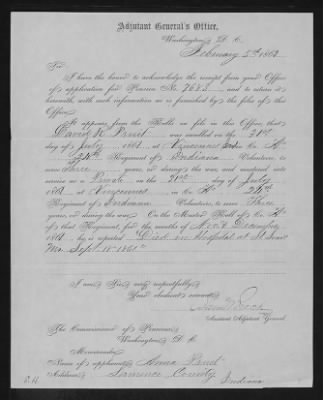 Adjutant General's Office,
Washington, D. C.
February 5th 1863
Sir:
I have the honor to acknowledge the receipt from your Office
of application for Pension No. 7682, and to return it
herewith, with such information as is furnished by the files of this
Office.
It appears from the Rolls on file in this Office, that
David W. was enrolled on the
day of July, 1861, at Vincennes in Co. H.
24th Regiment of Indiana Volunteers, to
serve Three years, or during the war, and mustered into
service as a Private on the 31st day of July
1861, at Vincennes, in Co. H. 24th
Regiment of Indiana Volunteers, to serve Three
years, or during the war. On the Muster Roll of Co. H.
of that Regiment, for the months of Nov. & December
1861, he is reported "Died in Hospital at St. Louis
Mo. Sept. 18 1861"
I am Sir, very respectfully,
Your obedient servant,
Assistant Adjutant General
The Commissioner of Pensions,
Washington, D. C.
Memoranda:
Name of applicant, Anna
Address, Lawrence County
Indiana